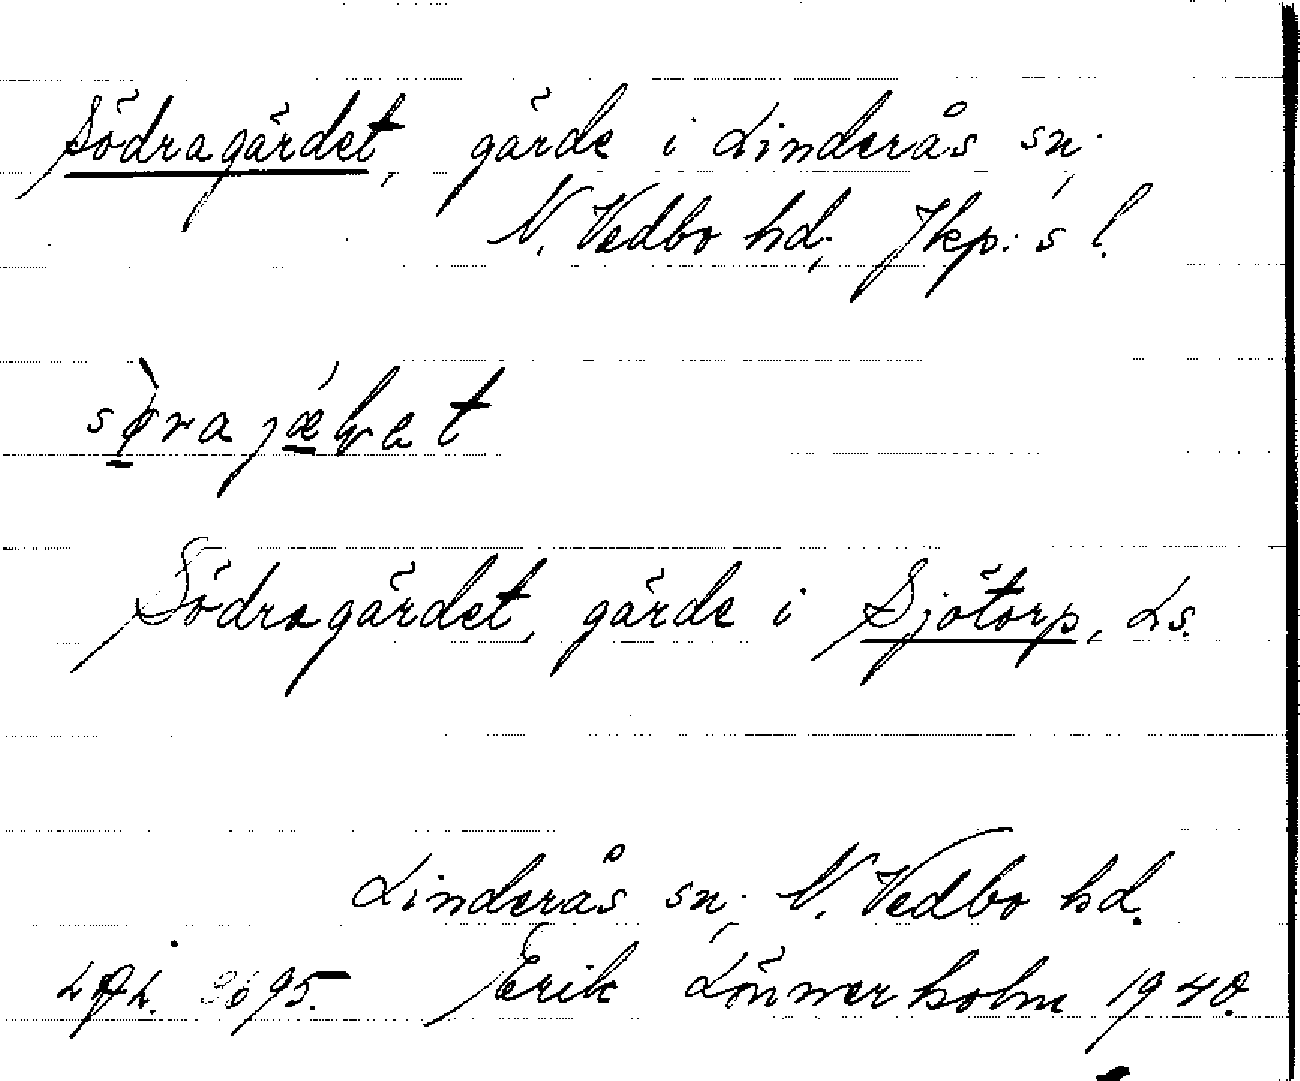 Södragärdet, gärde i Linderås sn.,
N. Vedbo hd., Jkp:s l.
Södragärdet, gärde i Sjötorp, Ls.
Linderås sn., N. Vedbo hd.
Erik Lönnerholm 1940.